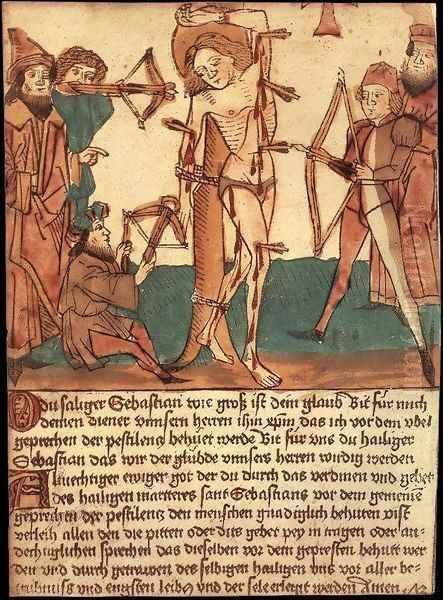 O du saliger Sebastian wie groß ist dein glaub Bit für mich
deinen diener vnnsern herren ihm xpm das ich vor dem vbel
geprechen der pestilentz behüet werde Bit für vns du hailiger
Sebastian das wir der glübde vnnsers herren wirdig werden
Almechtiger ewiger got der du durch das verdinen vnd gebet
des hailigen marterers sant Sebastians vor dem gemeine
geprechen der pestilentz den menschen gnadiglich behütten pist
verleih allen den die pitten oder dits gebet pey in tragen oder an-
dechtiglichen sprechen das dieselben vor dem gepresten behutt wer
den vnd durch getrauen des selbigen hailigen vns vor aller be-
trübnuss vnd engsten leibs vnd der sele erlegit werden Amen